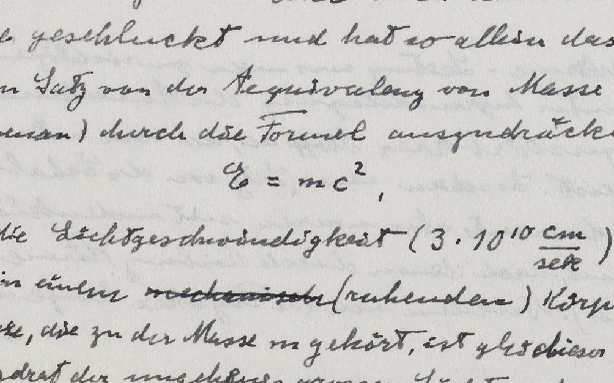 geschluckt und hat so allein das
Satz von der Aequivalenz von Masse
durch die Formel auszudrücke
E = mc²,
die Lichtgeschwindigkeit (3 . 10¹⁰ cm/sek)
in einem mechanisch (ruhenden) Körp
die zu der Masse m gehört, ist gleich dieser
der ungeheuer